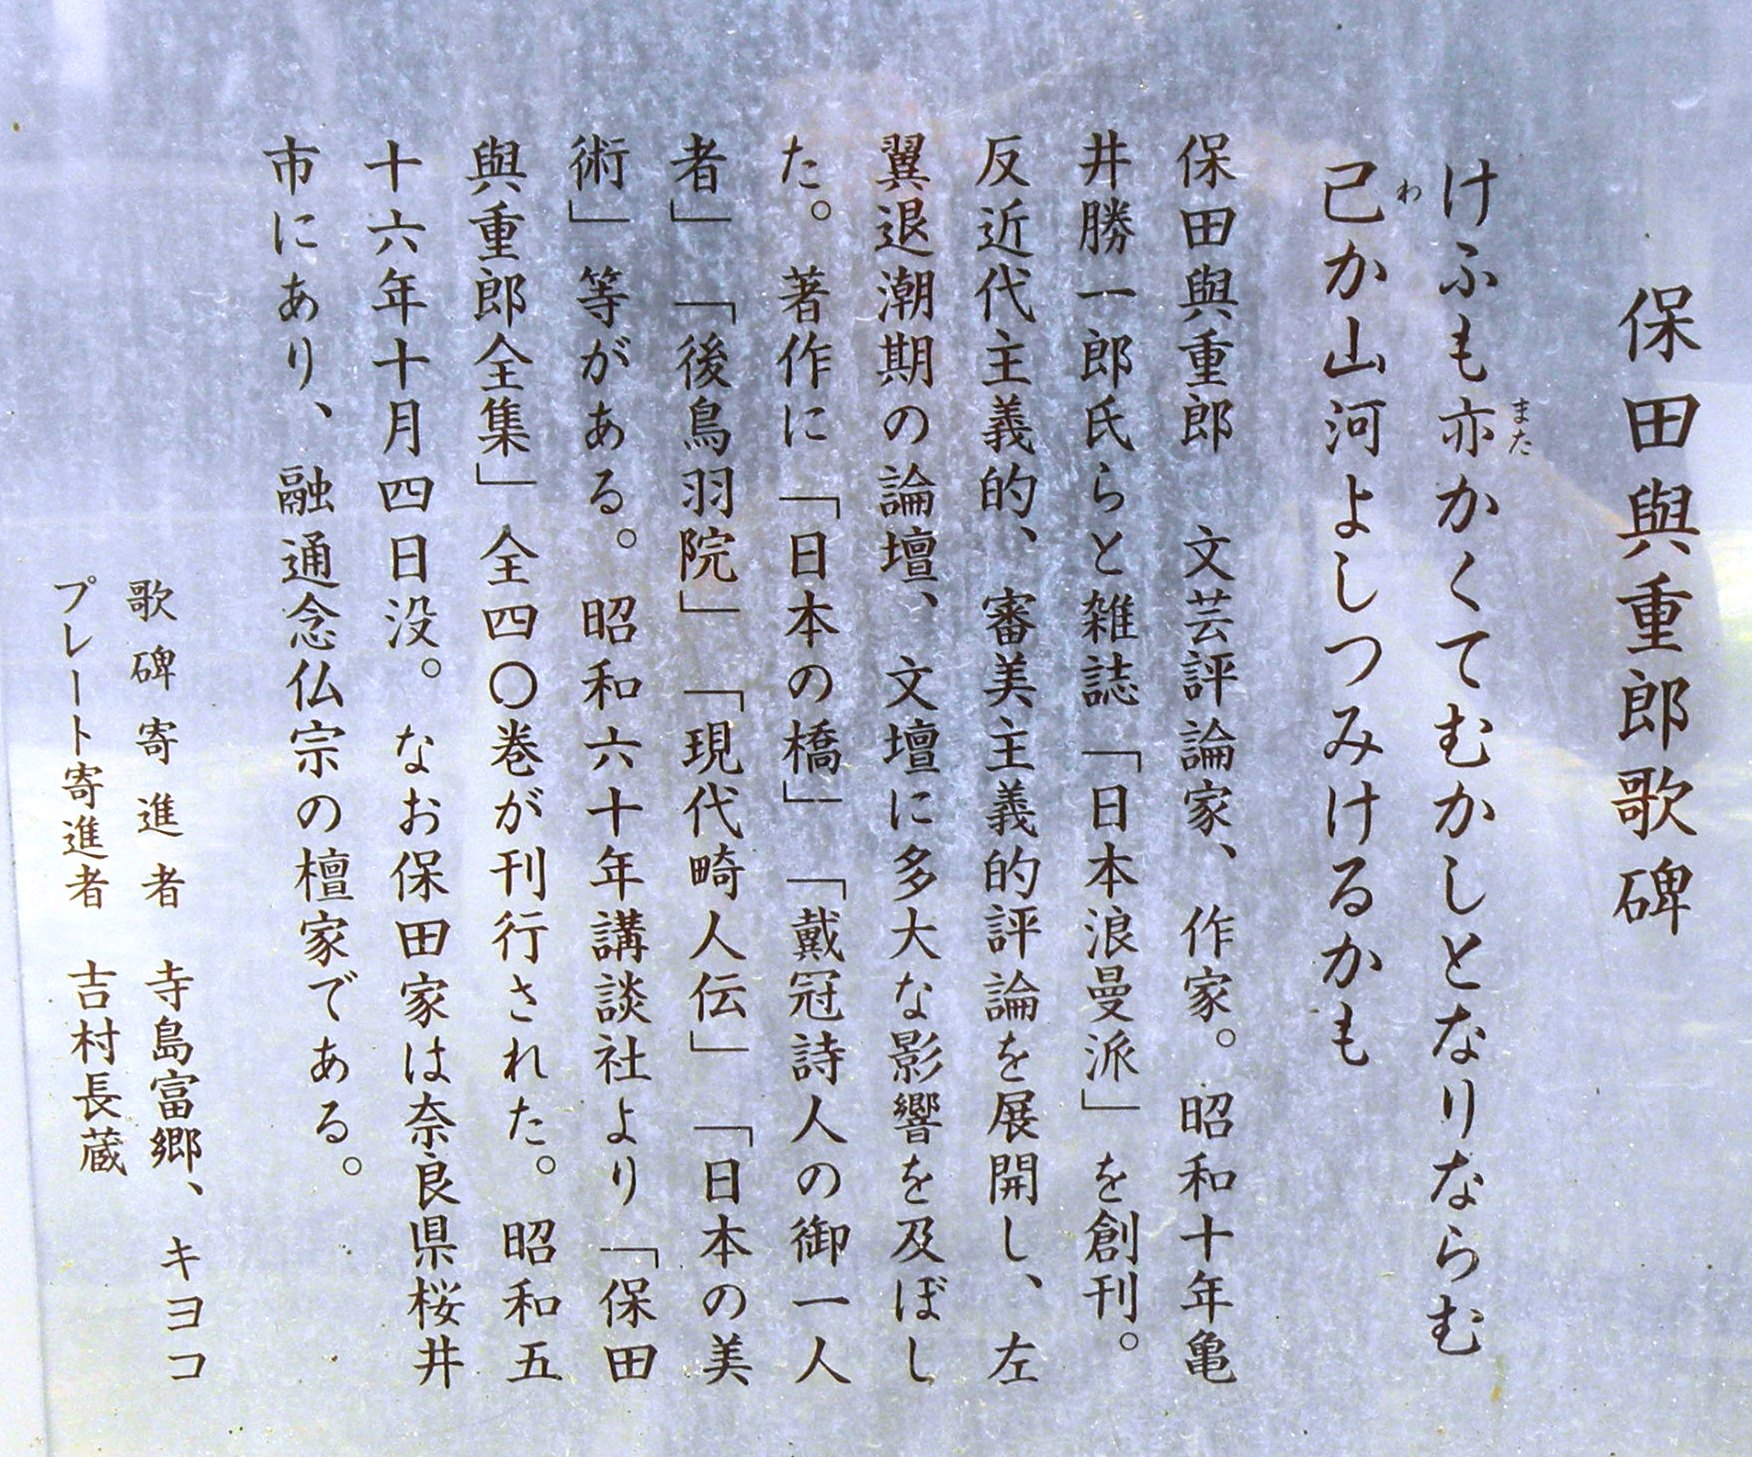 保田與重郎歌碑
けふも亦かくてむかしとなりならむ
また
己か山河よしつみけるかも
わ
保田與重郎　文芸評論家、作家。昭和十年亀
井勝一郎氏らと雑誌「日本浪曼派」を創刊。
反近代主義的、審美主義的評論を展開し、左
翼退潮期の論壇、文壇に多大な影響を及ぼし
た。著作に「日本の橋」「戴冠詩人の御一人
者」「後鳥羽院」「現代畸人伝」「日本の美
術」等がある。昭和六十年講談社より「保田
與重郎全集」全四〇巻が刊行された。昭和五
十六年十月四日没。なお保田家は奈良県桜井
市にあり、融通念仏宗の檀家である。
歌碑寄進者　寺島富郷、キヨコ
プレート寄進者　吉村長蔵